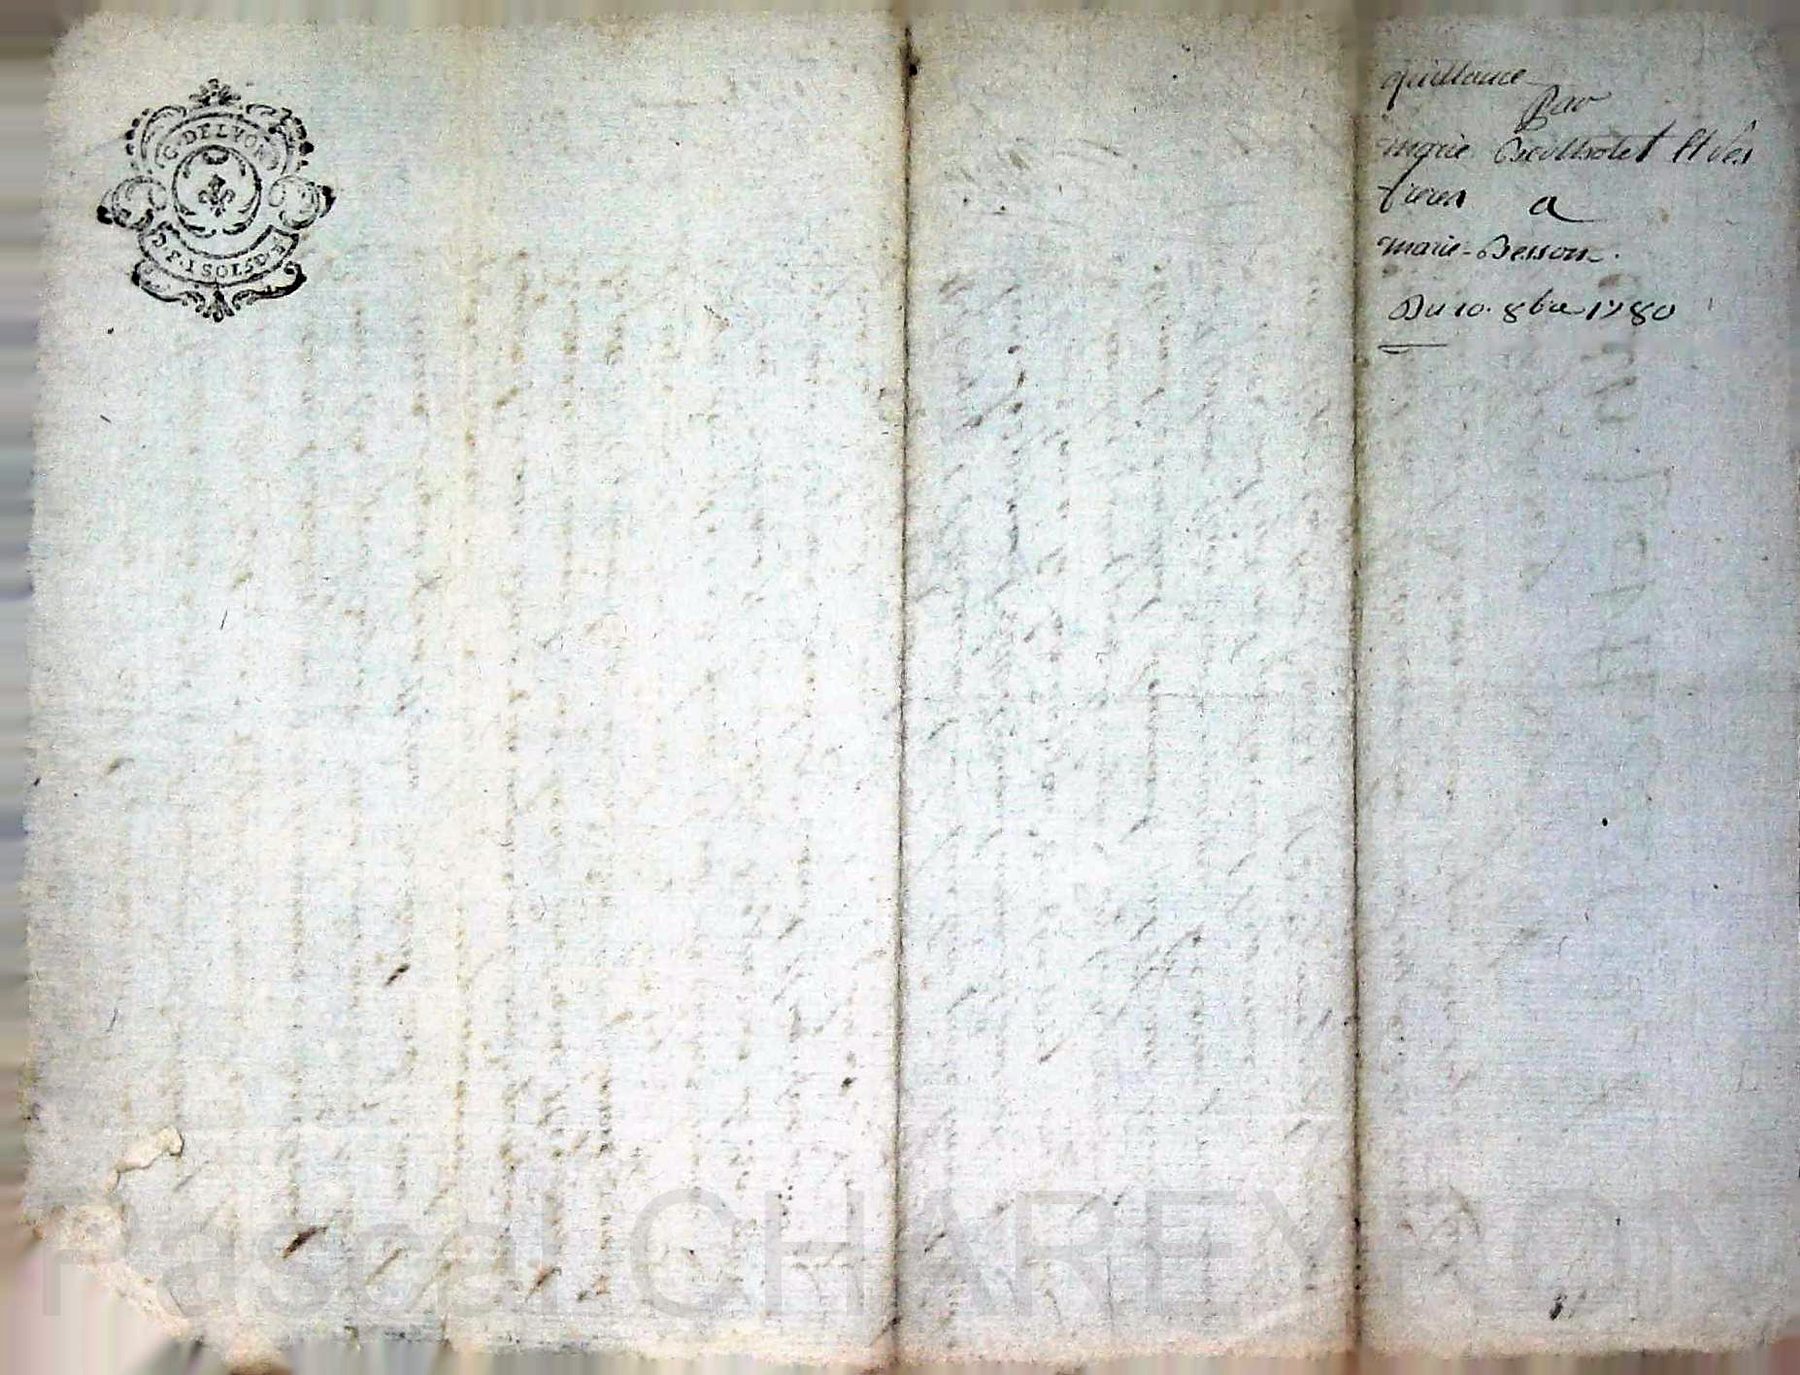 G. DE LYON
quittance
Par
marie Bertholet et ses
freres a
marie-Besson.
Du 10. 8bre 1780
Pascal CHAREYRON